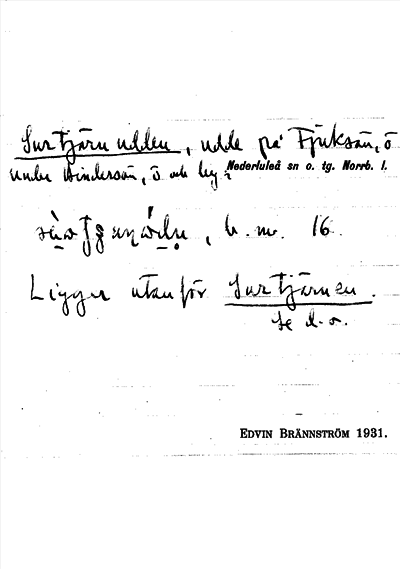 Surtjärnudden, udde på Fjuksön, ö
under Hindersön, ö och by i Nederluleå sn o. tg. Norrb. l.
b. nv. 16.
Ligger utanför Surtjärnen.
Se d. o.
EDVIN BRÄNNSTRÖM 1931.